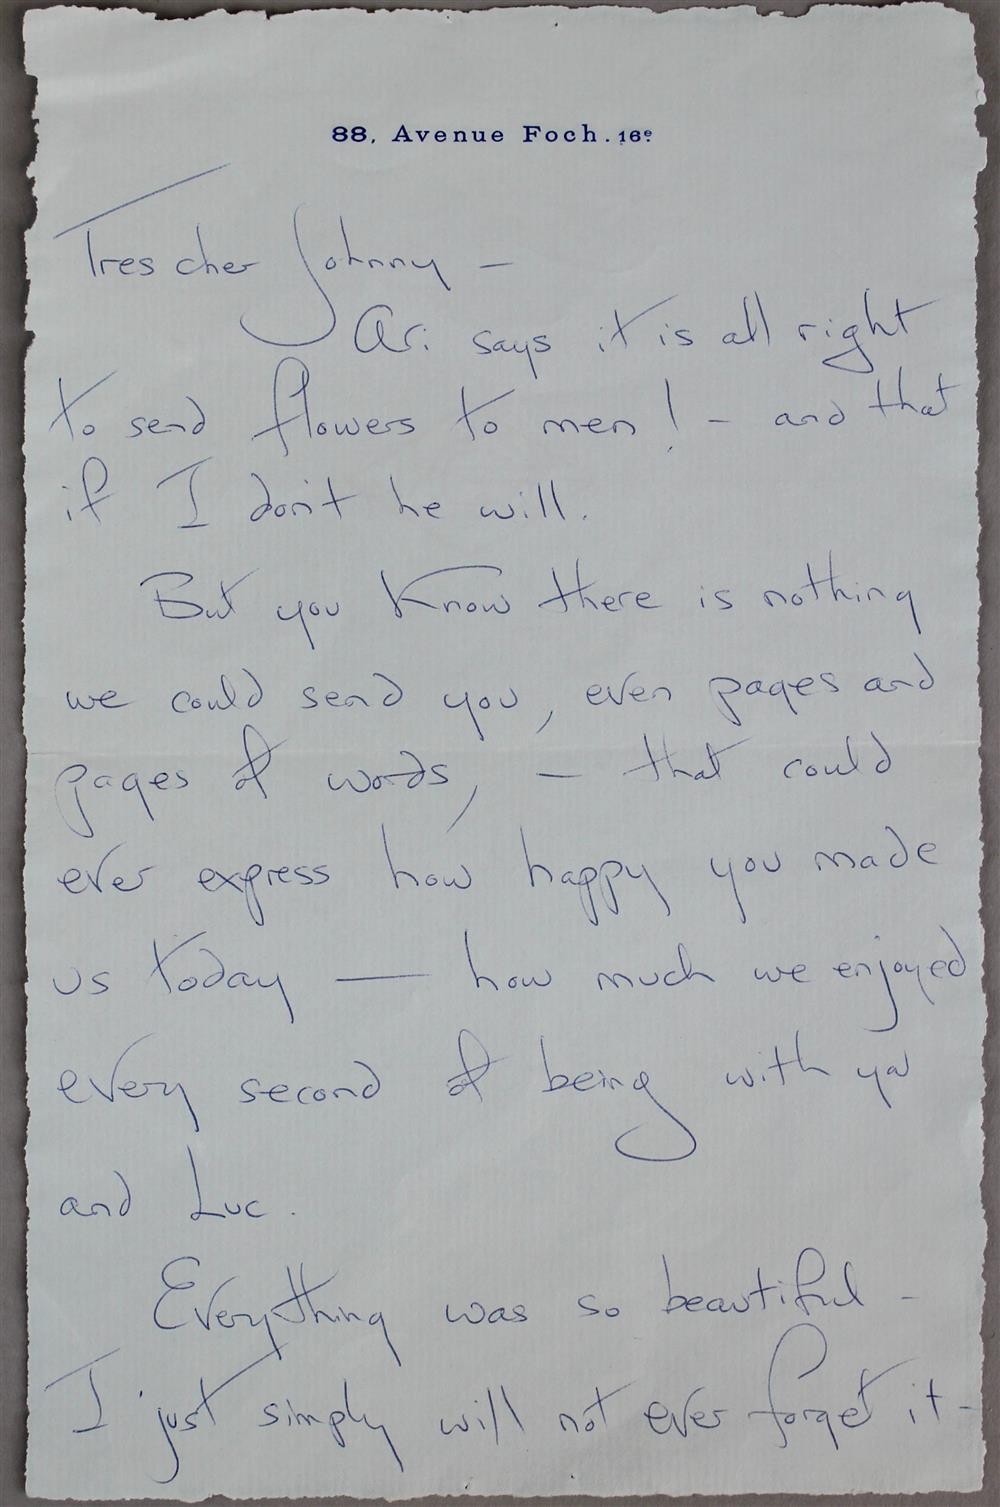 88, Avenue Foch. 16e.
Tres cher Johnny —
Ari says it is all right
to send flowers to men! — and that
if I don't he will.
But you know there is nothing
we could send you, even pages and
pages of words, — that could
ever express how happy you made
us today — how much we enjoyed
every second of being with you
and Luc.
Everything was so beautiful —
I just simply will not ever forget it —